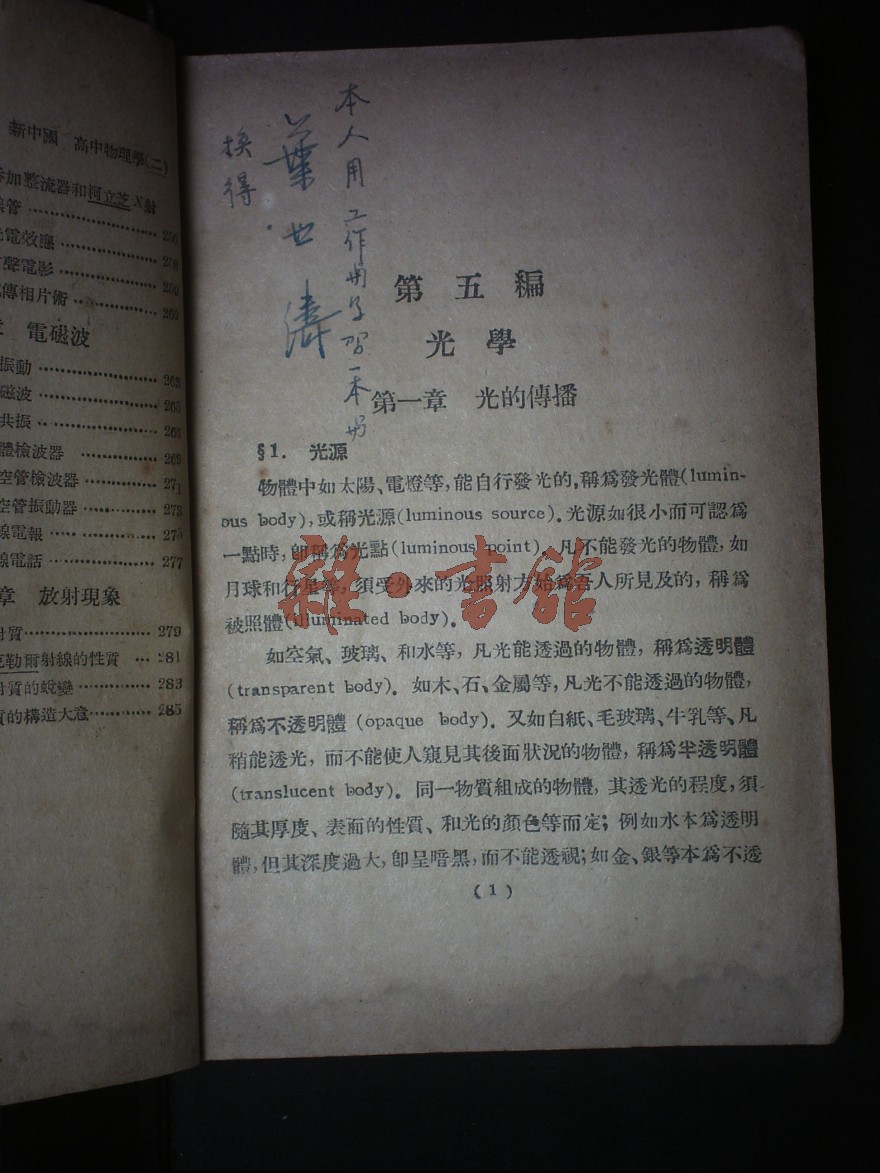 新中國 高中物理學(二)
加整流器和柯立芝X射
線管
電效應
聲電影
傳相片術 260
電磁波
振動 263
磁波 265
共振 268
體檢波器 269
空管檢波器 271
空管振動器 273
線電報 275
線電話 277
章 放射現象
射質 279
克勒爾射線的性質 281
射質的蛻變 283
質的構造大意 285
本人用工作 一本
葉世濤
換得
第五編
光學
第一章 光的傳播
§1. 光源
物體中如太陽、電燈等,能自行發光的,稱爲發光體(lumin-
ous body),或稱光源(luminous source)。光源如很小而可認爲
一點時,卽稱爲光點(luminous point)。凡不能發光的物體,如
月球和行星等,須受外來的光照射方始爲吾人所見及的,稱爲
被照體(illuminated body)。
如空氣、玻璃、和水等,凡光能透過的物體,稱爲透明體
(transparent body)。如木、石、金屬等,凡光不能透過的物體,
稱爲不透明體(opaque body)。又如白紙、毛玻璃、牛乳等、凡
稍能透光,而不能使人窺見其後面狀況的物體,稱爲半透明體
(translucent body)。同一物質組成的物體,其透光的程度,須
隨其厚度、表面的性質、和光的顏色等而定;例如水本爲透明
體,但其深度過大,卽呈暗黑,而不能透視;如金、銀等本爲不透
(1)
雜·書館